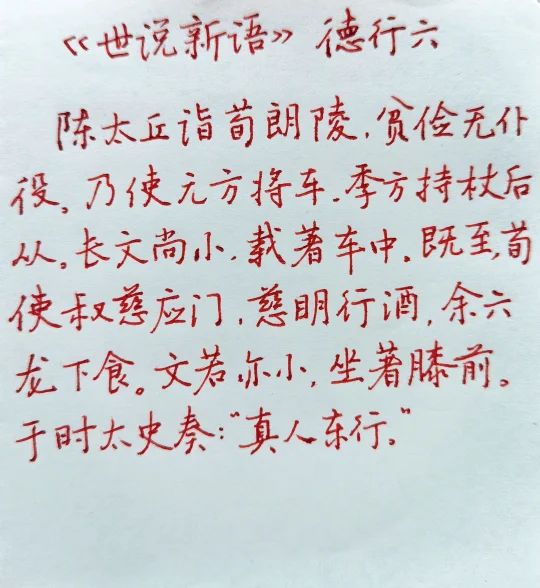 《世说新语》德行六
陈太丘诣荀朗陵,贫俭无仆
役。乃使元方将车,季方持杖后
从。长文尚小,载著车中。既至,荀
使叔慈应门,慈明行酒,余六
龙下食。文若亦小,坐著膝前。
于时太史奏:“真人东行。”